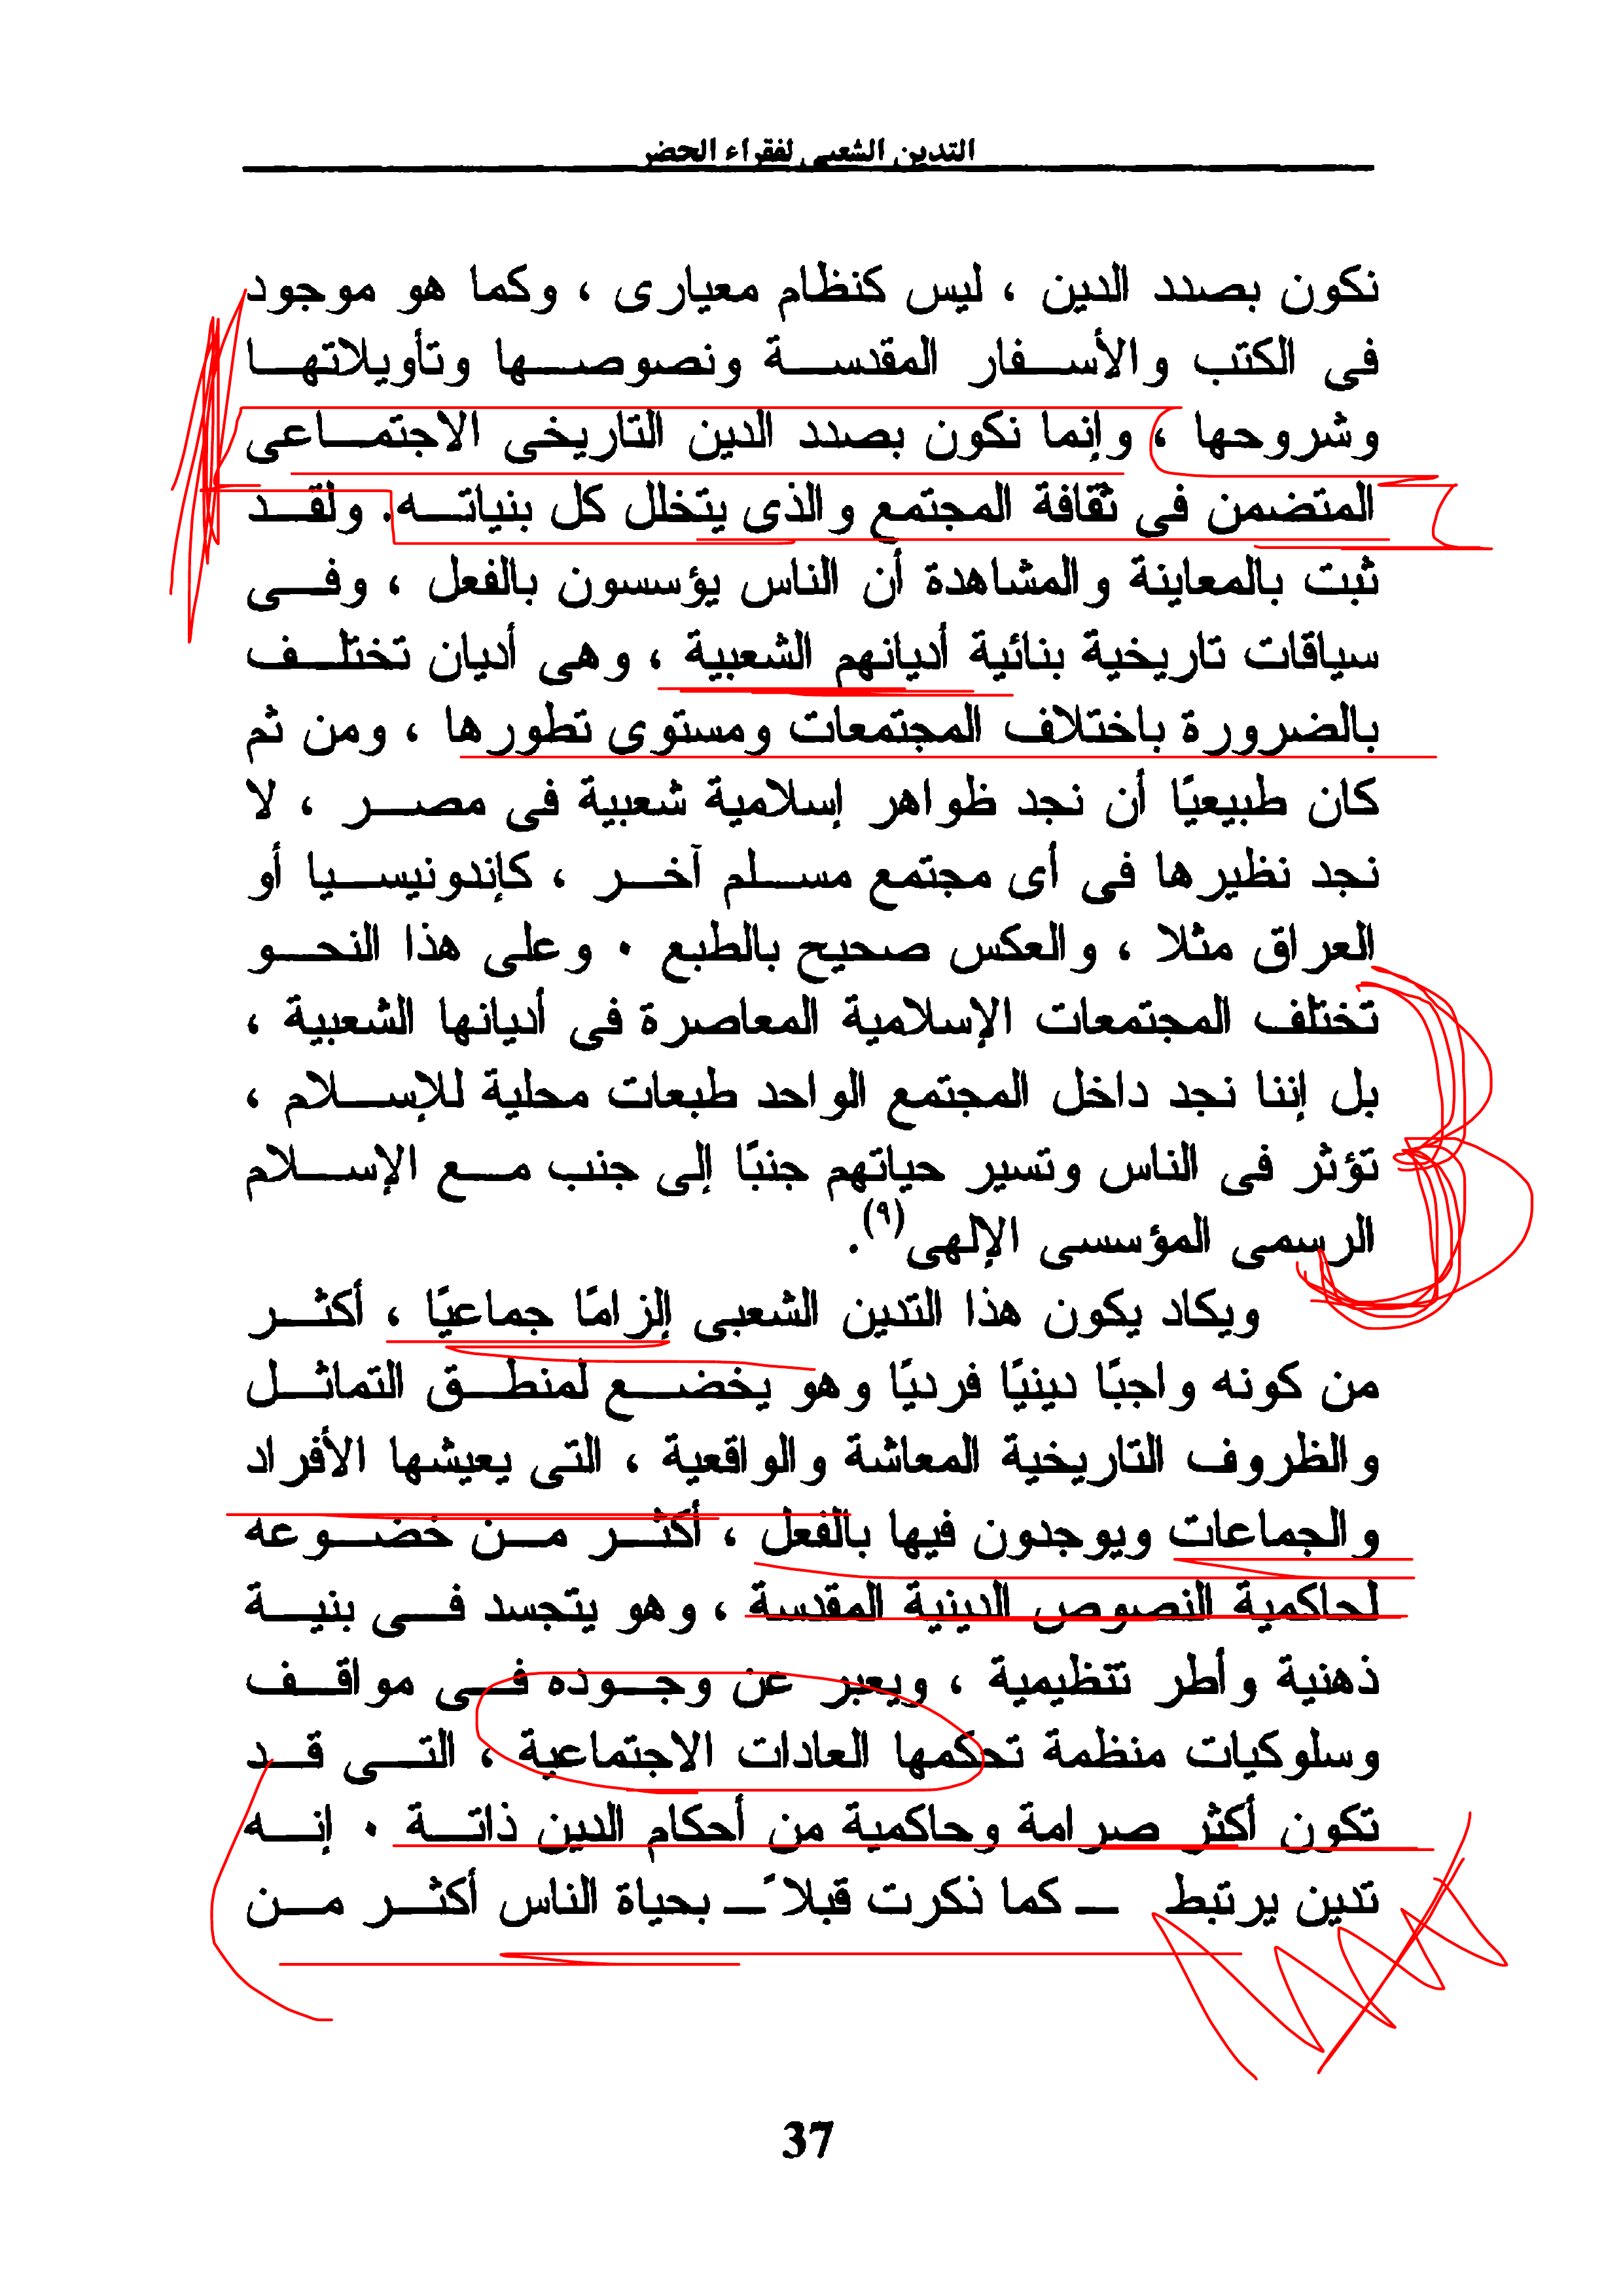 التدين الشعبى لفقراء الحضر
نكون بصدد الدين ، ليس كنظام معيارى ، وكما هو موجود
فى الكتب والأسفار المقدسة ونصوصها وتأويلاتها
وشروحها ، وإنما نكون بصدد الدين التاريخى الاجتماعى
المتضمن فى ثقافة المجتمع والذى يتخلل كل بنياته. ولقد
ثبت بالمعاينة والمشاهدة أن الناس يؤسسون بالفعل ، وفى
سياقات تاريخية بنائية أديانهم الشعبية ، وهى أديان تختلف
بالضرورة باختلاف المجتمعات ومستوى تطورها ، ومن ثم
كان طبيعيًا أن نجد ظواهر إسلامية شعبية فى مصر ، لا
نجد نظيرها فى أى مجتمع مسلم آخر ، كإندونيسيا أو
العراق مثلا ، والعكس صحيح بالطبع ٠ وعلى هذا النحو
تختلف المجتمعات الإسلامية المعاصرة فى أديانها الشعبية ،
بل إننا نجد داخل المجتمع الواحد طبعات محلية للإسلام ،
تؤثر فى الناس وتسير حياتهم جنبًا إلى جنب مع الإسلام
الرسمى المؤسسى الإلهى(٩).
ويكاد يكون هذا التدين الشعبى إلزامًا جماعيًا ، أكثر
من كونه واجبًا دينيًا فرديًا وهو يخضع لمنطق التماثل
والظروف التاريخية المعاشة والواقعية ، التى يعيشها الأفراد
والجماعات ويوجدون فيها بالفعل ، أكثر من خضوعه
لحاكمية النصوص الدينية المقدسة ، وهو يتجسد فى بنية
ذهنية وأطر تنظيمية ، ويعبر عن وجوده فى مواقف
وسلوكيات منظمة تحكمها العادات الاجتماعية ، التى قد
تكون أكثر صرامة وحاكمية من أحكام الدين ذاتة ٠ إنه
تدين يرتبط ــ كما ذكرت قبلاً ــ بحياة الناس أكثر من
37